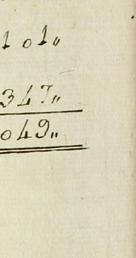 1 0 1 〃
347 〃
049 〃